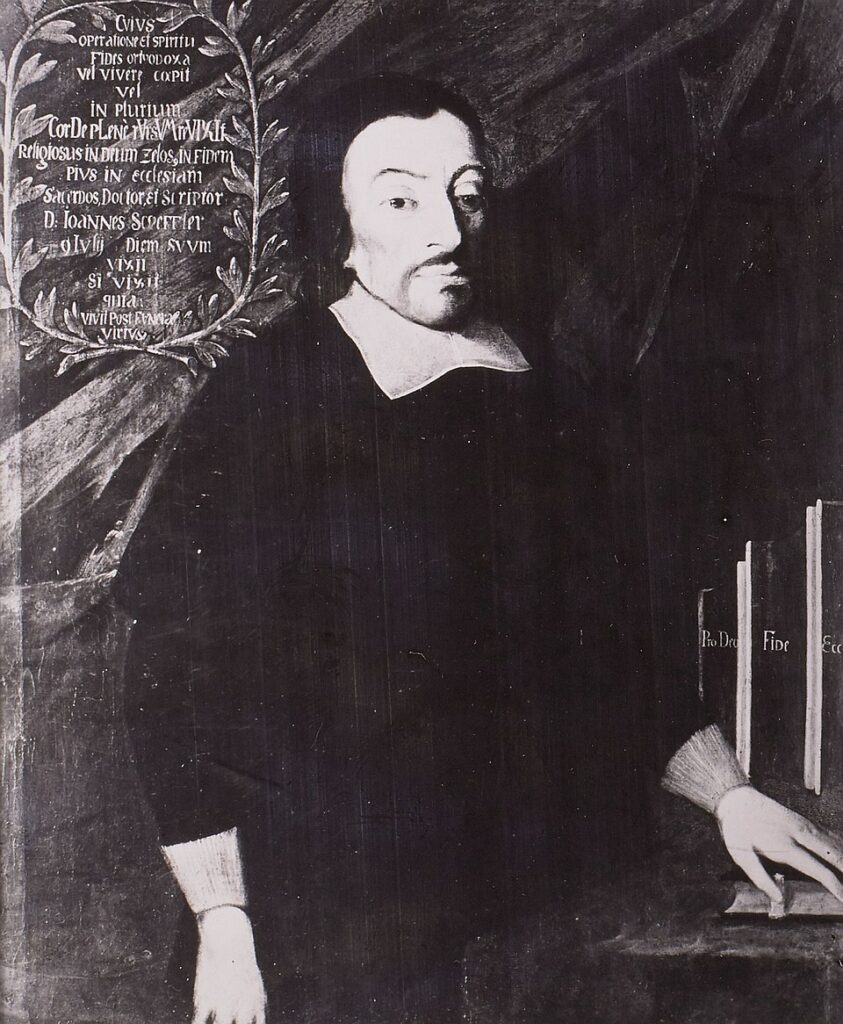 CVIVS
operatione et spiritu
Fides orthodoxa
vel vivere cœpit
vel
in plurium
CorDe pLenè
Religiosus in Deum Zelos, in Fidem
PIVS in ecclesiam
Sacerdos, Doctor, et Scriptor
D. Ioannes Scheffler
9 Iulij Diem Suum
vixit
Si vixit
quia
vivit Post Funera
virtus
Pro Deo
Fide
Ecc